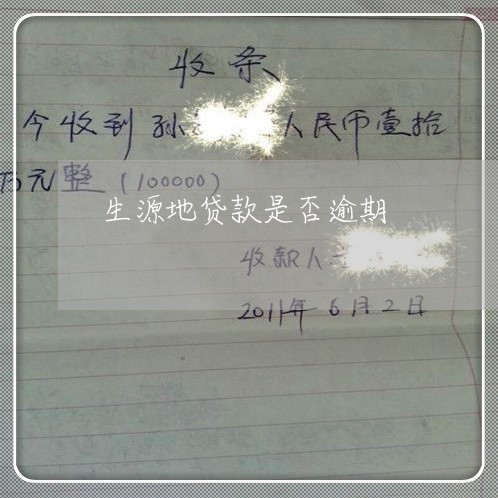 收条
今收到孙 人民币壹拾
万元整（100000）
生源地贷款是否逾期
收款人
2011年6月2日